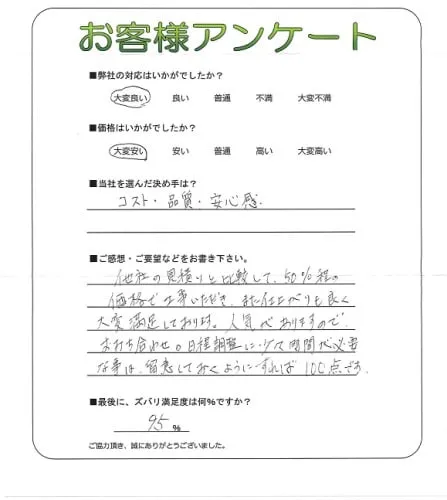 お客様アンケート
■弊社の対応はいかがでしたか?
大変良い 良い 普通 不満 大変不満
■価格はいかがでしたか?
大変安い 安い 普通 高い 大変高い
■当社を選んだ決め手は?
コスト・品質・安心感.
■ご感想・ご要望などをお書き下さい。
他社の見積りと比較して、50%程の
価格で工事いただき、また仕上がりも良く
大変満足しております。人気がありますので、
お打ち合わせ。日程調整に少々時間が必要
な事は、留意しておくようにすれば100点です。
■最後に、ズバリ満足度は何%ですか?
95 %
ご協力頂き、誠にありがとうございました。